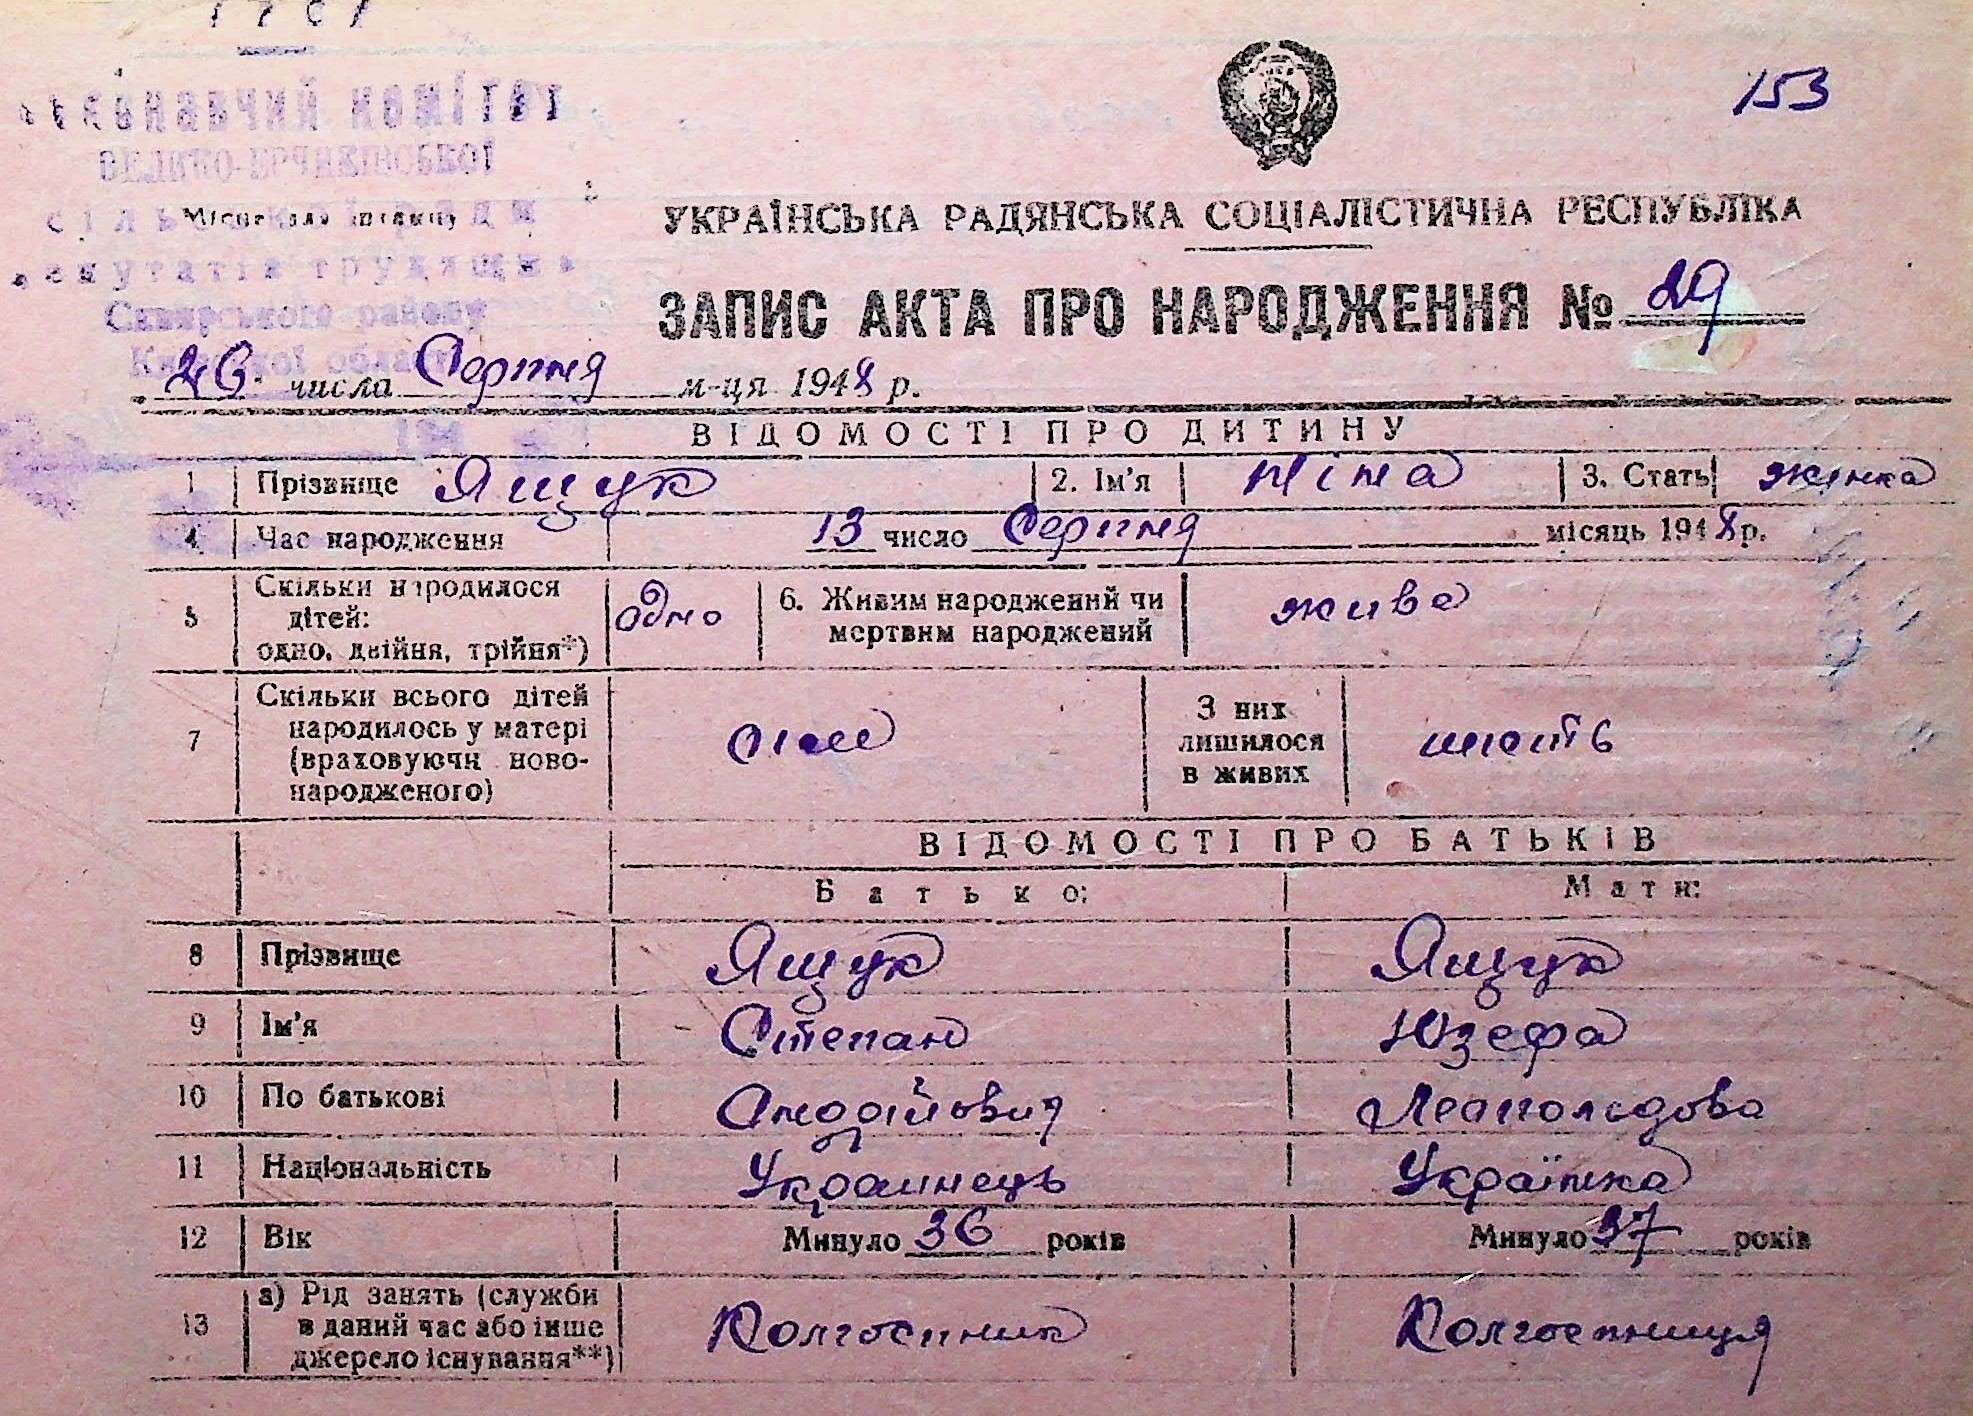 153
виконавчий комітет
сільської ради
депутатів трудящих
Сквирського району
Київської області
Місце для штампу
УКРАЇНСЬКА РАДЯНСЬКА СОЦІАЛІСТИЧНА РЕСПУБЛІКА
ЗАПИС АКТА ПРО НАРОДЖЕННЯ № 29
26 числа Серпня м-ця 1948 р.
ВІДОМОСТІ ПРО ДИТИНУ
1 Прізвище Ящук 2. Ім'я Ніна 3. Стать жінка
4 Час народження 13 число Серпня місяць 1948 р.
5 Скільки народилося
дітей:
одно, двійня, трійня*) одно 6. Живим народжений чи
мертвим народжений жива
7 Скільки всього дітей
народилось у матері
(враховуючи ново-
народженого) сім З них
лишилося
в живих шість
ВІДОМОСТІ ПРО БАТЬКІВ
Батько: Мати:
8 Прізвище Ящук Ящук
9 Ім'я Степан Юзефа
10 По батькові Андрійович Леопольдова
11 Національність Украинець Українка
12 Вік Минуло 36 років Минуло 37 років
13 а) Рід занять (служби
в даний час або інше
джерело існування**) Колгоспник Колгоспниця